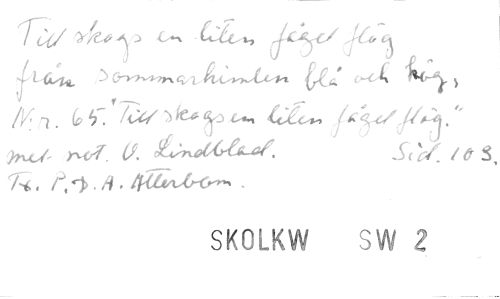 Till skogs en liten fågel flög
från sommarhimlen blå och hög,
N:r. 65. "Till skogs en liten fågel flög."
mel. not. O. Lindblad. Sid. 103.
Tx. P.D.A. Atterbom.
SKOLKW SW 2